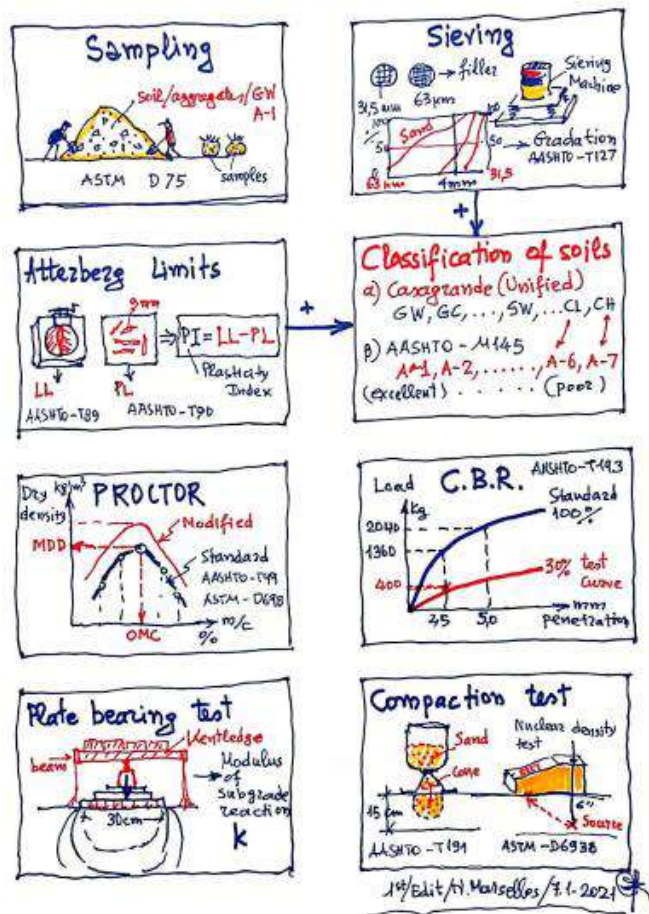 Sampling
soil/aggregates/GW
A-1
ASTM D75
samples
Siering
filler
Siering
Machine
31,5 mm
63μm
100
100
%
Sand
50
50
Gradation
AASHTO-T127
0
63μm
4mm
31,5
Atterberg Limits
PI=LL-PL
Plasticity
Index
LL
PL
AASHTO-T89
AASHTO-T90
+
+
Classification of soils
a) Casagrande (Unified)
GW, GC, ..., SW, ...CL, CH
β) AASHTO-M145
A-1, A-2, ......, A-6, A-7
(excellent) . . . . . (poor)
Dry kg/m³
density
PROCTOR
Modified
MDD
Standard
AASHTO-T99
ASTM-D698
OMC
m/c
%
Load
kg
C.B.R.
AASHTO-T193
Standard
100%
2040
1360
400
30% test
curve
2,5
5,0
mm
penetration
Plate bearing test
Kentledge
beam
Modulus
of
subgrade
reaction
30cm
k
Compaction test
Sand
Cone
Nuclear density
test
15 cm
6"
Source
AASHTO-T191
ASTM-D6938
1st/Edit/N.Marselles/7.1-2021